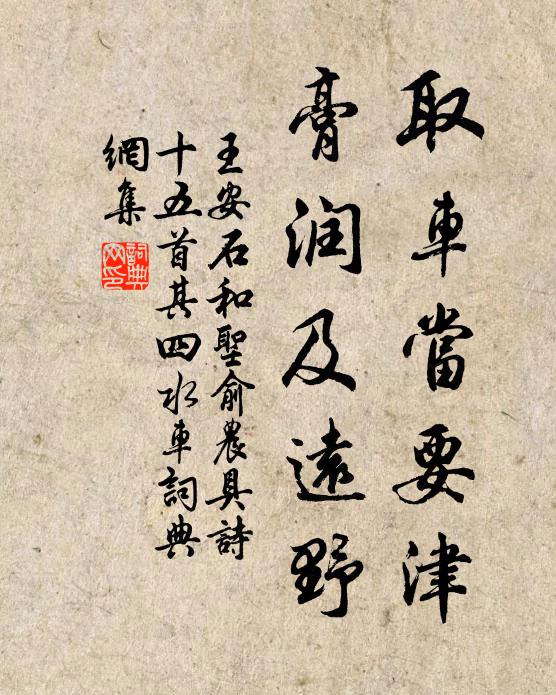 取車當要津
膏润及遠野
王安石和聖俞農具詩
十五首其四水車詞典
網集
詞典
网印